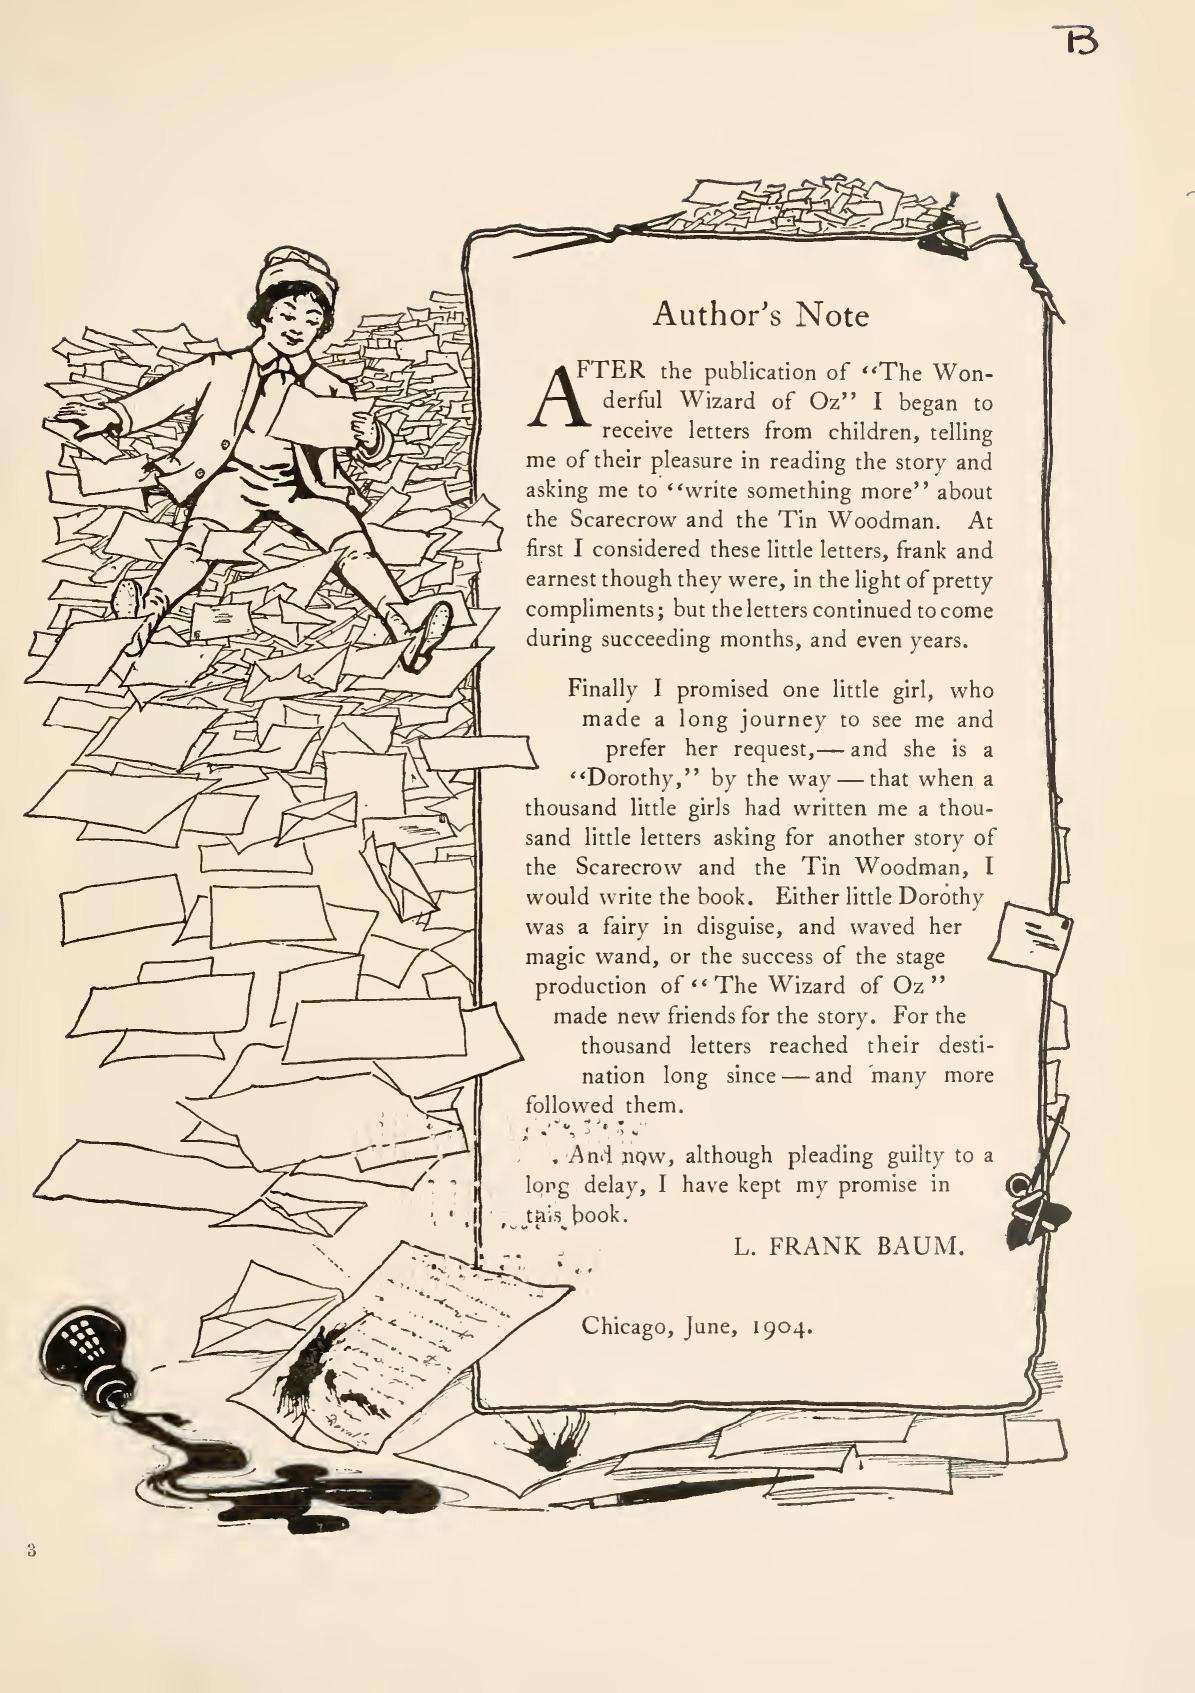 B
Author's Note
AFTER the publication of “The Won-
derful Wizard of Oz” I began to
receive letters from children, telling
me of their pleasure in reading the story and
asking me to “write something more” about
the Scarecrow and the Tin Woodman. At
first I considered these little letters, frank and
earnest though they were, in the light of pretty
compliments; but the letters continued to come
during succeeding months, and even years.
Finally I promised one little girl, who
made a long journey to see me and
prefer her request,—and she is a
“Dorothy,” by the way—that when a
thousand little girls had written me a thou-
sand little letters asking for another story of
the Scarecrow and the Tin Woodman, I
would write the book. Either little Dorothy
was a fairy in disguise, and waved her
magic wand, or the success of the stage
production of “The Wizard of Oz”
made new friends for the story. For the
thousand letters reached their desti-
nation long since—and many more
followed them.
And now, although pleading guilty to a
long delay, I have kept my promise in
this book.
L. FRANK BAUM.
Chicago, June, 1904.
3